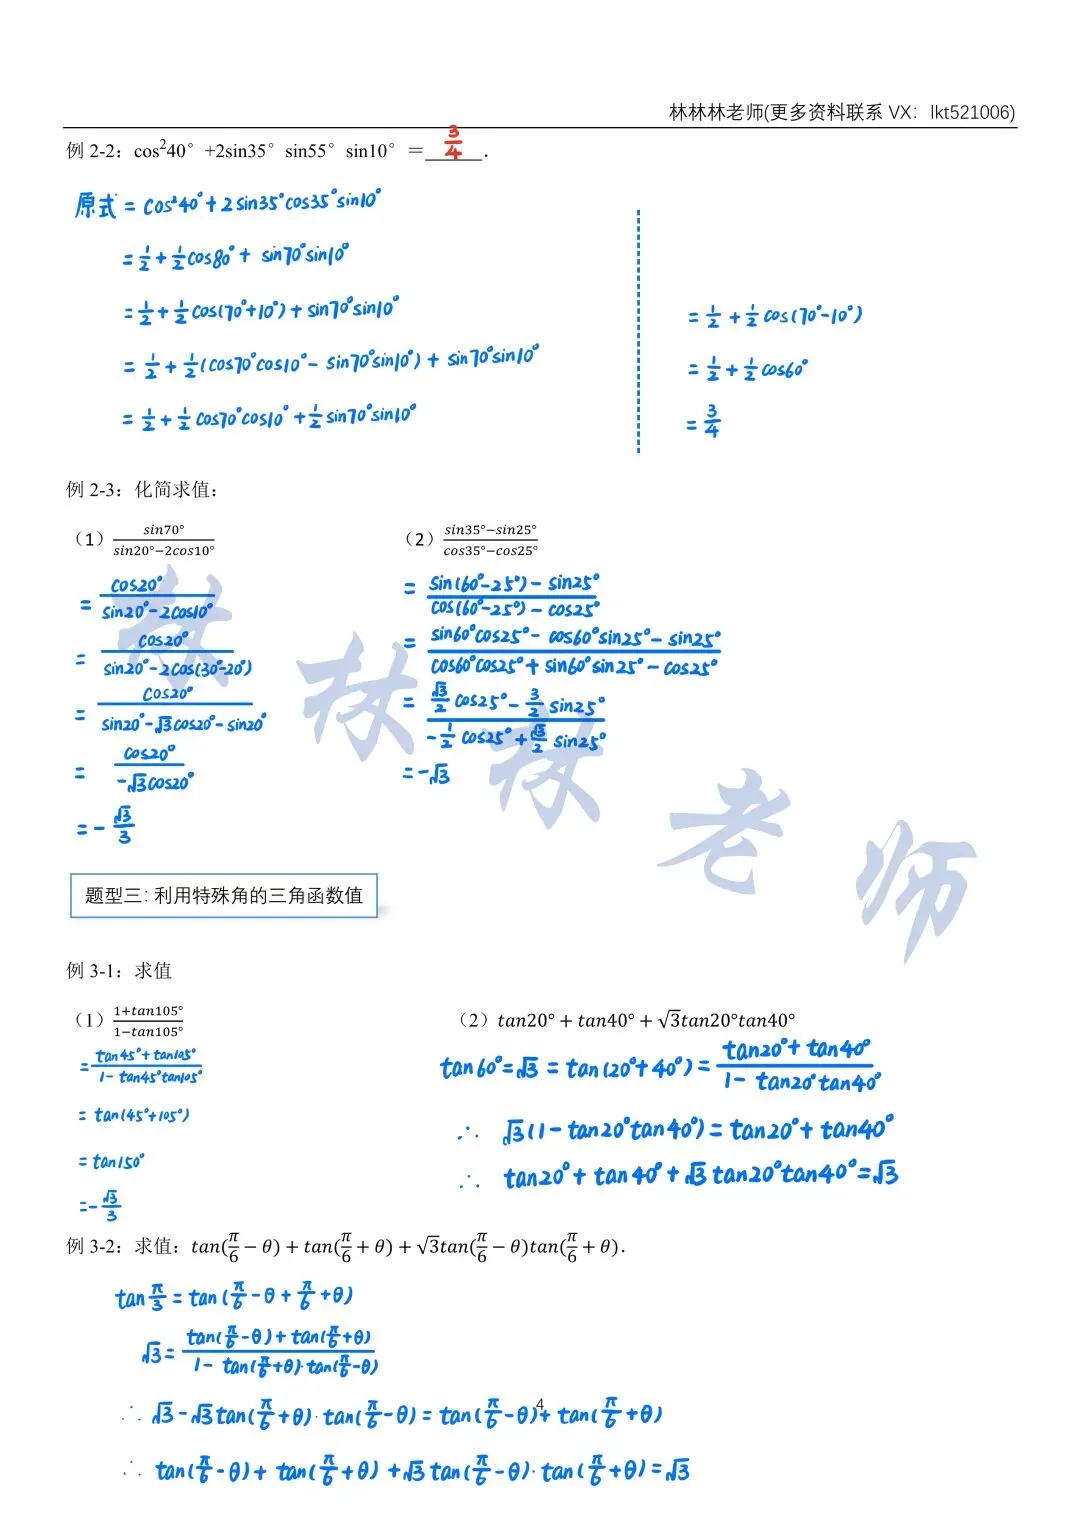 林林林老师(更多资料联系 VX：lkt521006)
例 2-2：cos²40° +2sin35° sin55° sin10° ＝ 3/4 ．
原式 = cos²40°+2sin35°cos35°sin10°
= 1/2 + 1/2 cos80° + sin70°sin10°
= 1/2 + 1/2 cos(70°+10°) + sin70°sin10°
= 1/2 + 1/2 (cos70°cos10° - sin70°sin10°) + sin70°sin10°
= 1/2 + 1/2 cos70°cos10° + 1/2 sin70°sin10°
= 1/2 + 1/2 cos(70°-10°)
= 1/2 + 1/2 cos60°
= 3/4
例 2-3：化简求值：
（1）sin70°/(sin20°−2cos10°)
= cos20°/(sin20°-2cos10°)
= cos20°/(sin20°-2cos(30°-20°))
= cos20°/(sin20°-√3cos20°-sin20°)
= cos20°/(-√3cos20°)
= - √3/3
（2）(sin35°−sin25°)/(cos35°−cos25°)
= (sin(60°-25°)-sin25°)/(cos(60°-25°)-cos25°)
= (sin60°cos25°-cos60°sin25°-sin25°)/(cos60°cos25°+sin60°sin25°-cos25°)
= (√3/2 cos25° - 3/2 sin25°)/(-1/2 cos25° + √3/2 sin25°)
= -√3
林林林老师
题型三：利用特殊角的三角函数值
例 3-1：求值
（1）(1+tan105°)/(1−tan105°)
= (tan45°+tan105°)/(1-tan45°tan105°)
= tan(45°+105°)
= tan150°
= - √3/3
（2）tan20° + tan40° + √3tan20°tan40°
tan60°=√3 = tan(20°+40°) = (tan20°+tan40°)/(1-tan20°tan40°)
∴ √3(1-tan20°tan40°) = tan20°+tan40°
∴ tan20°+tan40°+√3tan20°tan40°=√3
例 3-2：求值：tan(π/6 − θ) + tan(π/6 + θ) + √3tan(π/6 − θ)tan(π/6 + θ).
tan π/3 = tan(π/6 - θ + π/6 + θ)
√3 = (tan(π/6-θ)+tan(π/6+θ))/(1-tan(π/6+θ)·tan(π/6-θ))
∴ √3-√3tan(π/6+θ)·tan(π/6-θ) = tan(π/6-θ)+tan(π/6+θ)
4
∴ tan(π/6-θ)+tan(π/6+θ)+√3tan(π/6-θ)·tan(π/6+θ)=√3